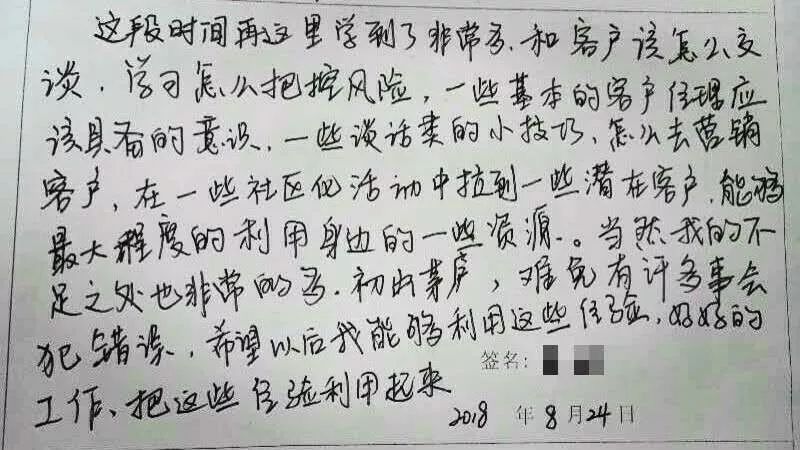 这段时间再这里学到了非常多.和客户该怎么交
谈.学习怎么把控风险,一些基本的客户经理应
该具备的意识.一些谈话类的小技巧、怎么去营销
客户,在一些社区化活动中拉到一些潜在客户.能够
最大程度的利用身边的一些资源.。当然我的不
足之处也非常的多.初出茅庐,难免有许多事会
犯错误.希望以后我能够利用这些经验.好好的
签名:
工作、把这些经验利用起来
2018 年 8 月 24 日